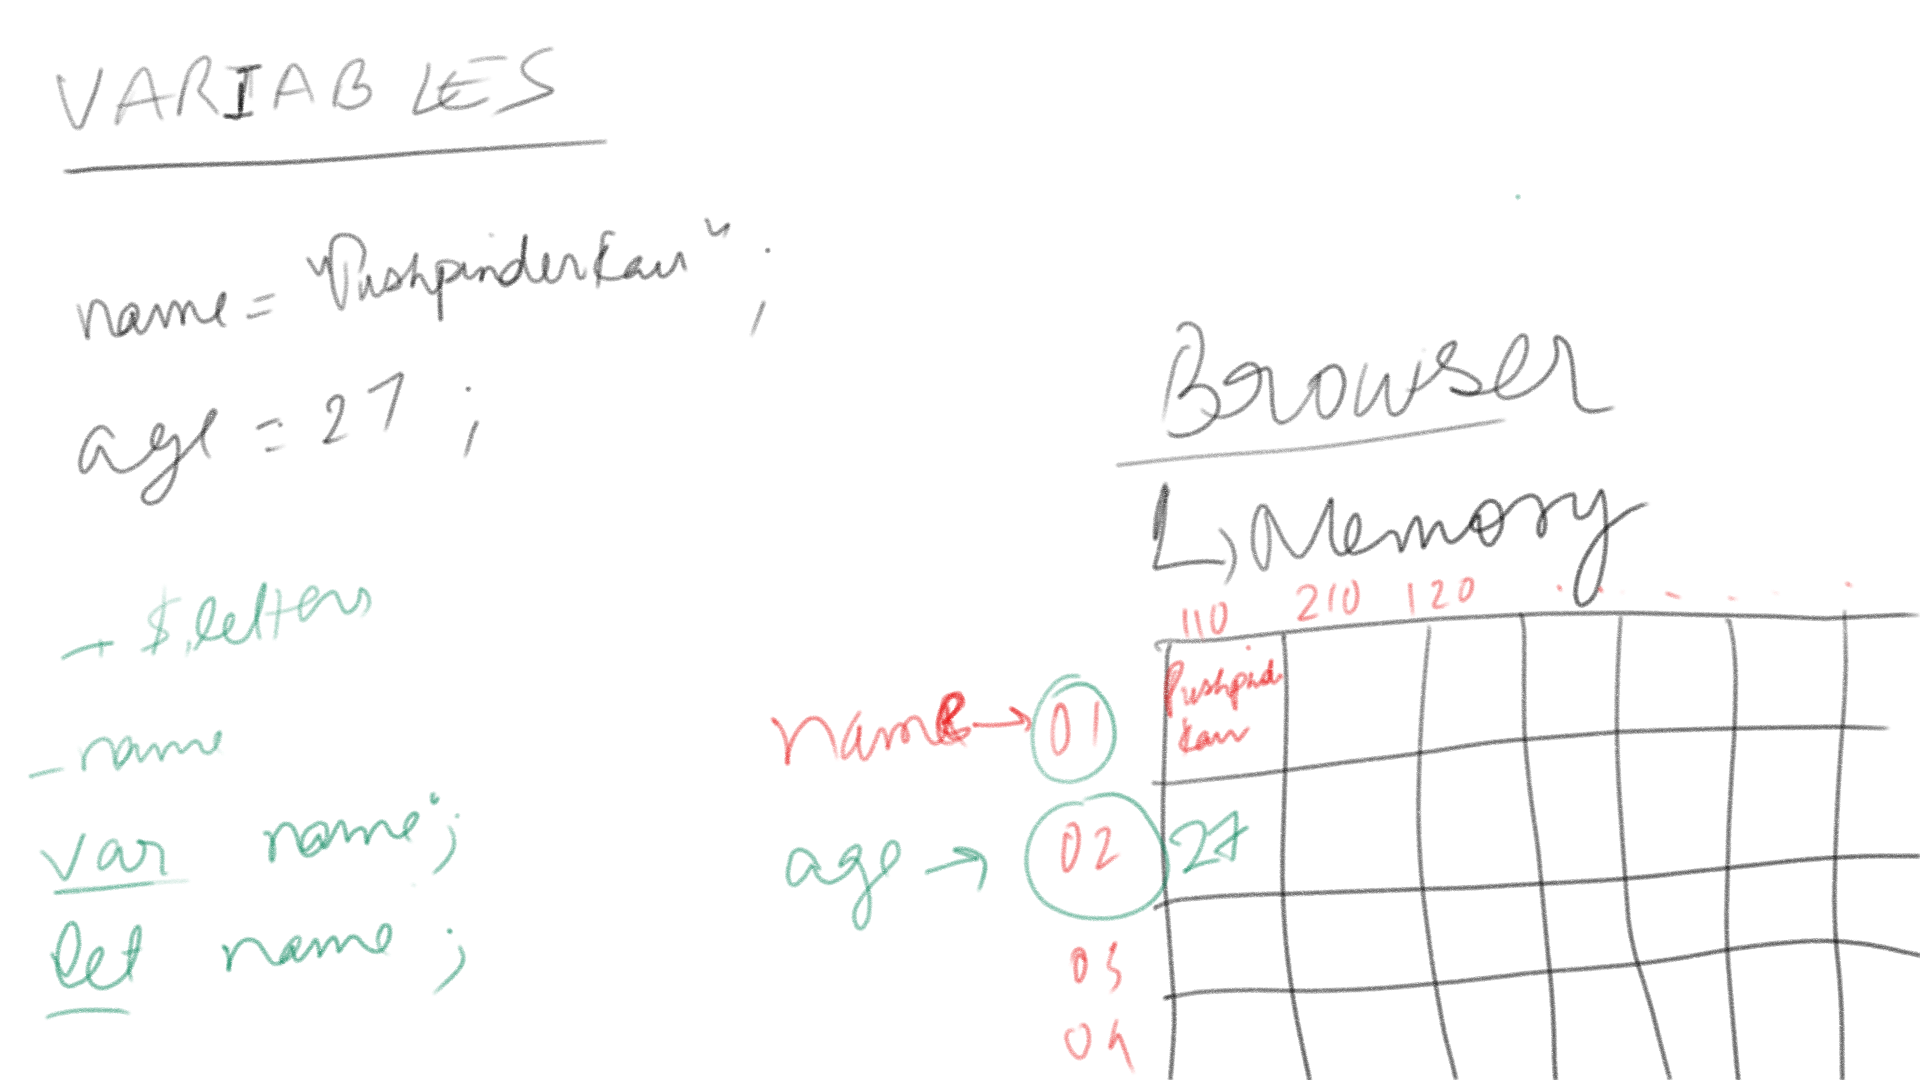 VARIABLES
name = "Pushpinder Kaur" ;
age = 27 ;
- $, letters
_name
var name ;
let name ;
Browser
↳ Memory
110 210 120 . . . . .
name → 01 Pushpind
Kaur
age → 02 27
03
04